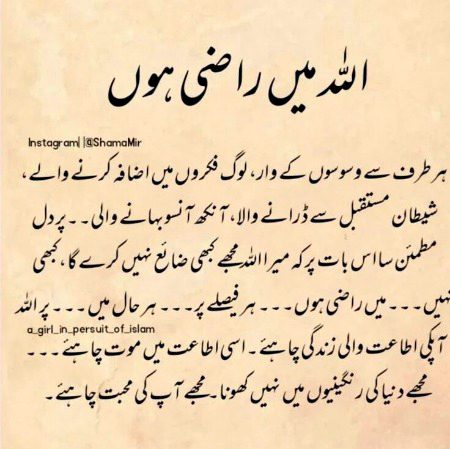 اللہ میں راضی ہوں
Instagram| |@ShamaMir
ہر طرف سے وسوسوں کے وار، لوگ فکروں میں اضافہ کرنے والے،
شیطان مستقبل سے ڈرانے والا، آنکھ آنسو بہانے والی۔۔پر دل
مطمئن سا اس بات پر کہ میرا اللہ مجھے کبھی ضائع نہیں کرے گا، کبھی
نہیں۔۔۔ میں راضی ہوں۔۔۔ ہر فیصلے پر۔۔۔ ہر حال میں۔۔۔ پر اللہ
a_girl_in_persuit_of_islam
آپکی اطاعت والی زندگی چاہئے۔ اسی اطاعت میں موت چاہئے۔۔۔
مجھے دنیا کی رنگینیوں میں نہیں کھونا۔ مجھے آپ کی محبت چاہئے۔